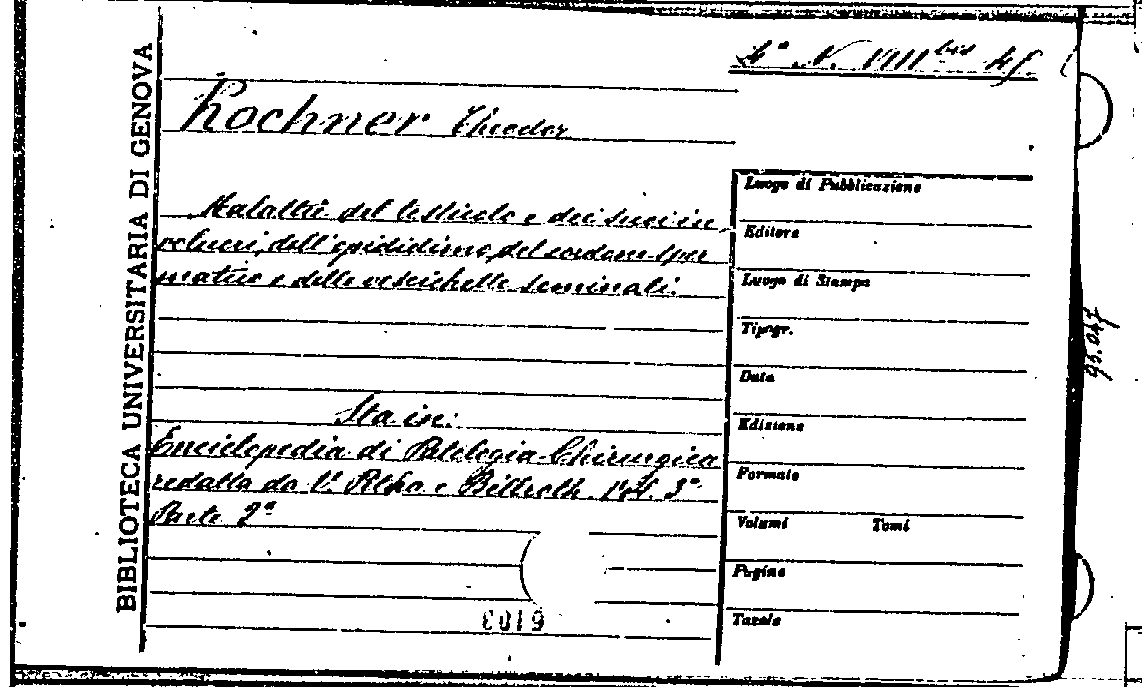 BIBLIOTECA UNIVERSITARIA DI GENOVA
4ª N. VIII bis 45
Kochner Theodor
Malattie del testicolo e dei suoi in
volucri, dell'epididimo, del cordone sper
matico e delle vescichette seminali.
Sta in:
Enciclopedia di Patologia Chirurgica
redatta da V. Pitha e Billroth. Vol. 3º
Parte 2ª
6103
Luogo di Pubblicazione
Editore
Luogo di Stampa
Tipogr.
Data
Edizione
Formato
Volumi Tomi
Pagine
Tavole
93.047